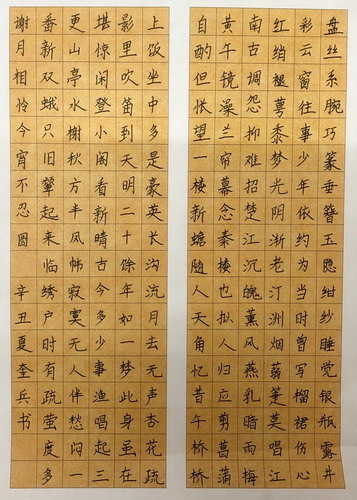 盘丝系腕巧篆垂簪玉隐绀纱睡觉银瓶露井
彩云窗住事少年依约为当时曾写榴裙伤心
红绡褪萼黍梦光阴渐老汀洲烟蒻莫唱江
南古调怨抑难招楚江沉魄薰风燕乳暗雨梅
黄午镜澡兰帘幕念秦楼也拟人归应剪菖蒲
自酌但怅望一楼新蟾随人天角忆昔午桥桥
上饭坐中多是豪英长沟流月去无声杏花疏
影里吹笛到天明二十馀年如一梦此身虽在
堪惊闲登小阁看新晴古今多少事渔唱起三
更山亭水榭秋方半风帏寂寞无人伴愁闷一
番新双蛾只旧颦起来临绣户时有疏萤度多
谢月相怜今宵不忍圆 辛丑夏奎兵书